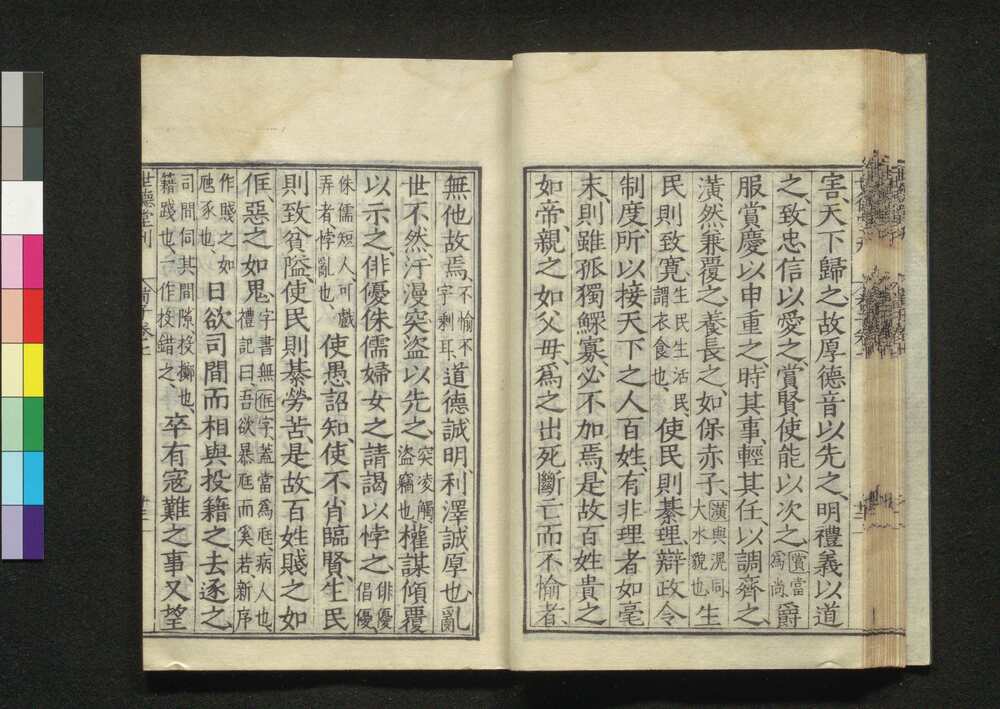 害、天下歸之、故厚德音以先之、明禮義以道
之、致忠信以愛之、賞賢使能以次之、賞當爲尚爵
服賞慶以申重之、時其事、輕其任、以調齊之、
潢然兼覆之、養長之、如保赤子、潢與滉同大水貌也生
民則致寬、生民生活民、謂衣食也、使民則綦理、辯政令
制度、所以接天下之人百姓、有非理者如毫
末、則雖孤獨鰥寡、必不加焉、是故百姓貴之
如帝、親之如父母、爲之出死斷亡而不愉者、
無他故焉、不愉不字剩耳、道德誠明、利澤誠厚也、亂
世不然、汙漫突盜以先之、突凌觸、盜竊也、權謀傾覆
以示之、俳優侏儒婦女之請謁以悖之、俳優倡優、
侏儒短人、可戲弄者悖亂也、使愚詔知、使不肖臨賢、生民
則致貧隘、使民則綦勞苦、是故百姓賤之如
㑌、惡之如鬼、字書無㑌字、蓋當爲尫、病人也、禮記曰、吾欲暴尫而奚若、新序
作賤之如尫豕也、日欲司間而相與投籍之、去逐之、
司間伺其間隙、投擲也、籍踐也、一作投錯之、卒有寇難之事、又望
世德堂刊
荀子卷七